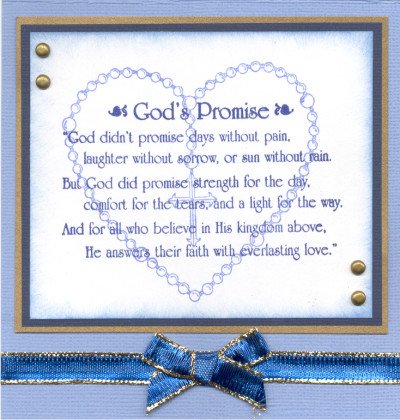 God's Promise
"God didn't promise days without pain,
laughter without sorrow, or sun without rain.
But God did promise strength for the day,
comfort for the tears, and a light for the way.
And for all who believe in His kingdom above,
He answers their faith with everlasting love."